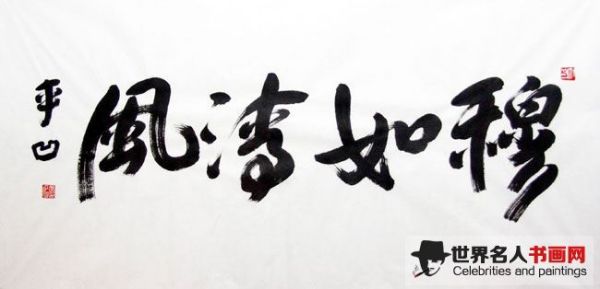 穆如清風
平凹
世界名人书画网
Celebrities and paintings